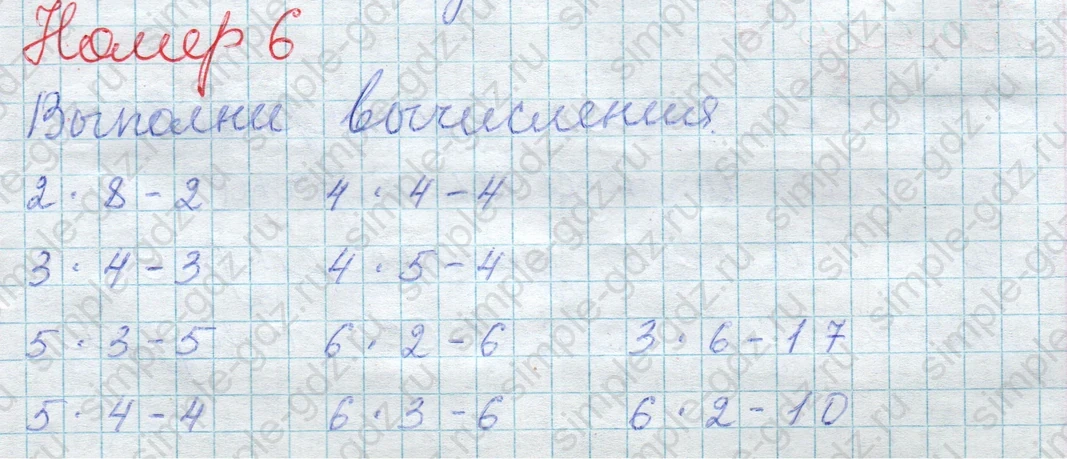 Номер 6
Выполни вычисления.
2 · 8 - 2 4 · 4 - 4
3 · 4 - 3 4 · 5 - 4
5 · 3 - 5 6 · 2 - 6 3 · 6 - 17
5 · 4 - 4 6 · 3 - 6 6 · 2 - 10
simple-gdz.ru